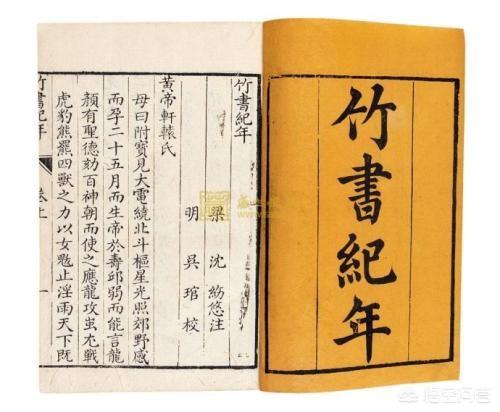 竹書紀年
竹書紀年
梁 沈 注
明 吳琯校
黃帝軒轅氏
母曰附寶見大電繞北斗樞星光照郊野感
而孕二十五月而生帝於壽邱弱而能言龍
顏有聖德劾百神朝而使之應龍攻蚩尤戰
虎豹熊羆四獸之力以女魃止淫雨天下既
竹書紀年 卷上 一